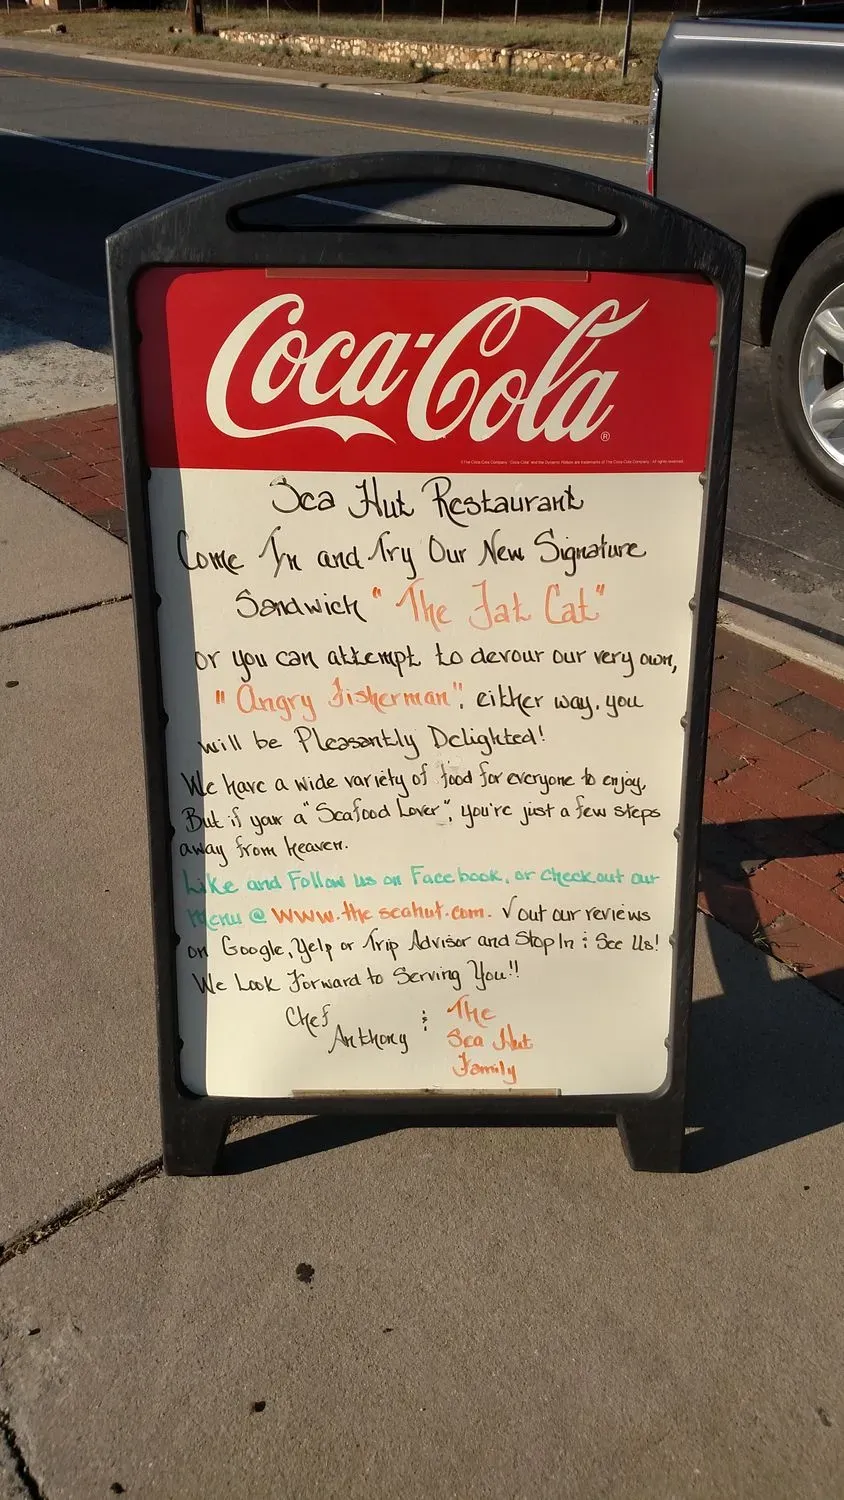 Coca-Cola
®
Sea Hut Restaurant
Come In and Try Our New Signature
Sandwich "The Fat Cat"
or you can attempt to devour our very own,
"Angry Fisherman", either way, you
will be Pleasantly Delighted!
We have a wide variety of food for everyone to enjoy,
But if your a "Seafood Lover", you're just a few steps
away from heaven.
Like and Follow us on Facebook, or check out our
menu @ www.the seahut.com. √ out our reviews
on Google, Yelp or Trip Advisor and Stop In & See Us!
We Look Forward to Serving You!!
Chef
Anthony &
The
Sea Hut
Family